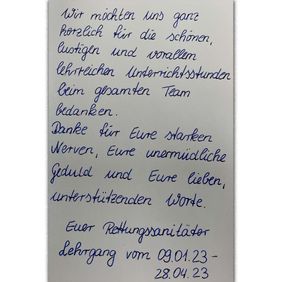 Wir möchten uns ganz
herzlich für die schönen,
lustigen und vorallem
lehrreichen Unterrichtsstunden
beim gesamten Team
bedanken.
Danke für Eure starken
Nerven, Eure unermüdliche
Geduld und Eure lieben,
unterstützenden Worte.
Euer Rettungssanitäter
Lehrgang vom 09.01.23-
28.04.23